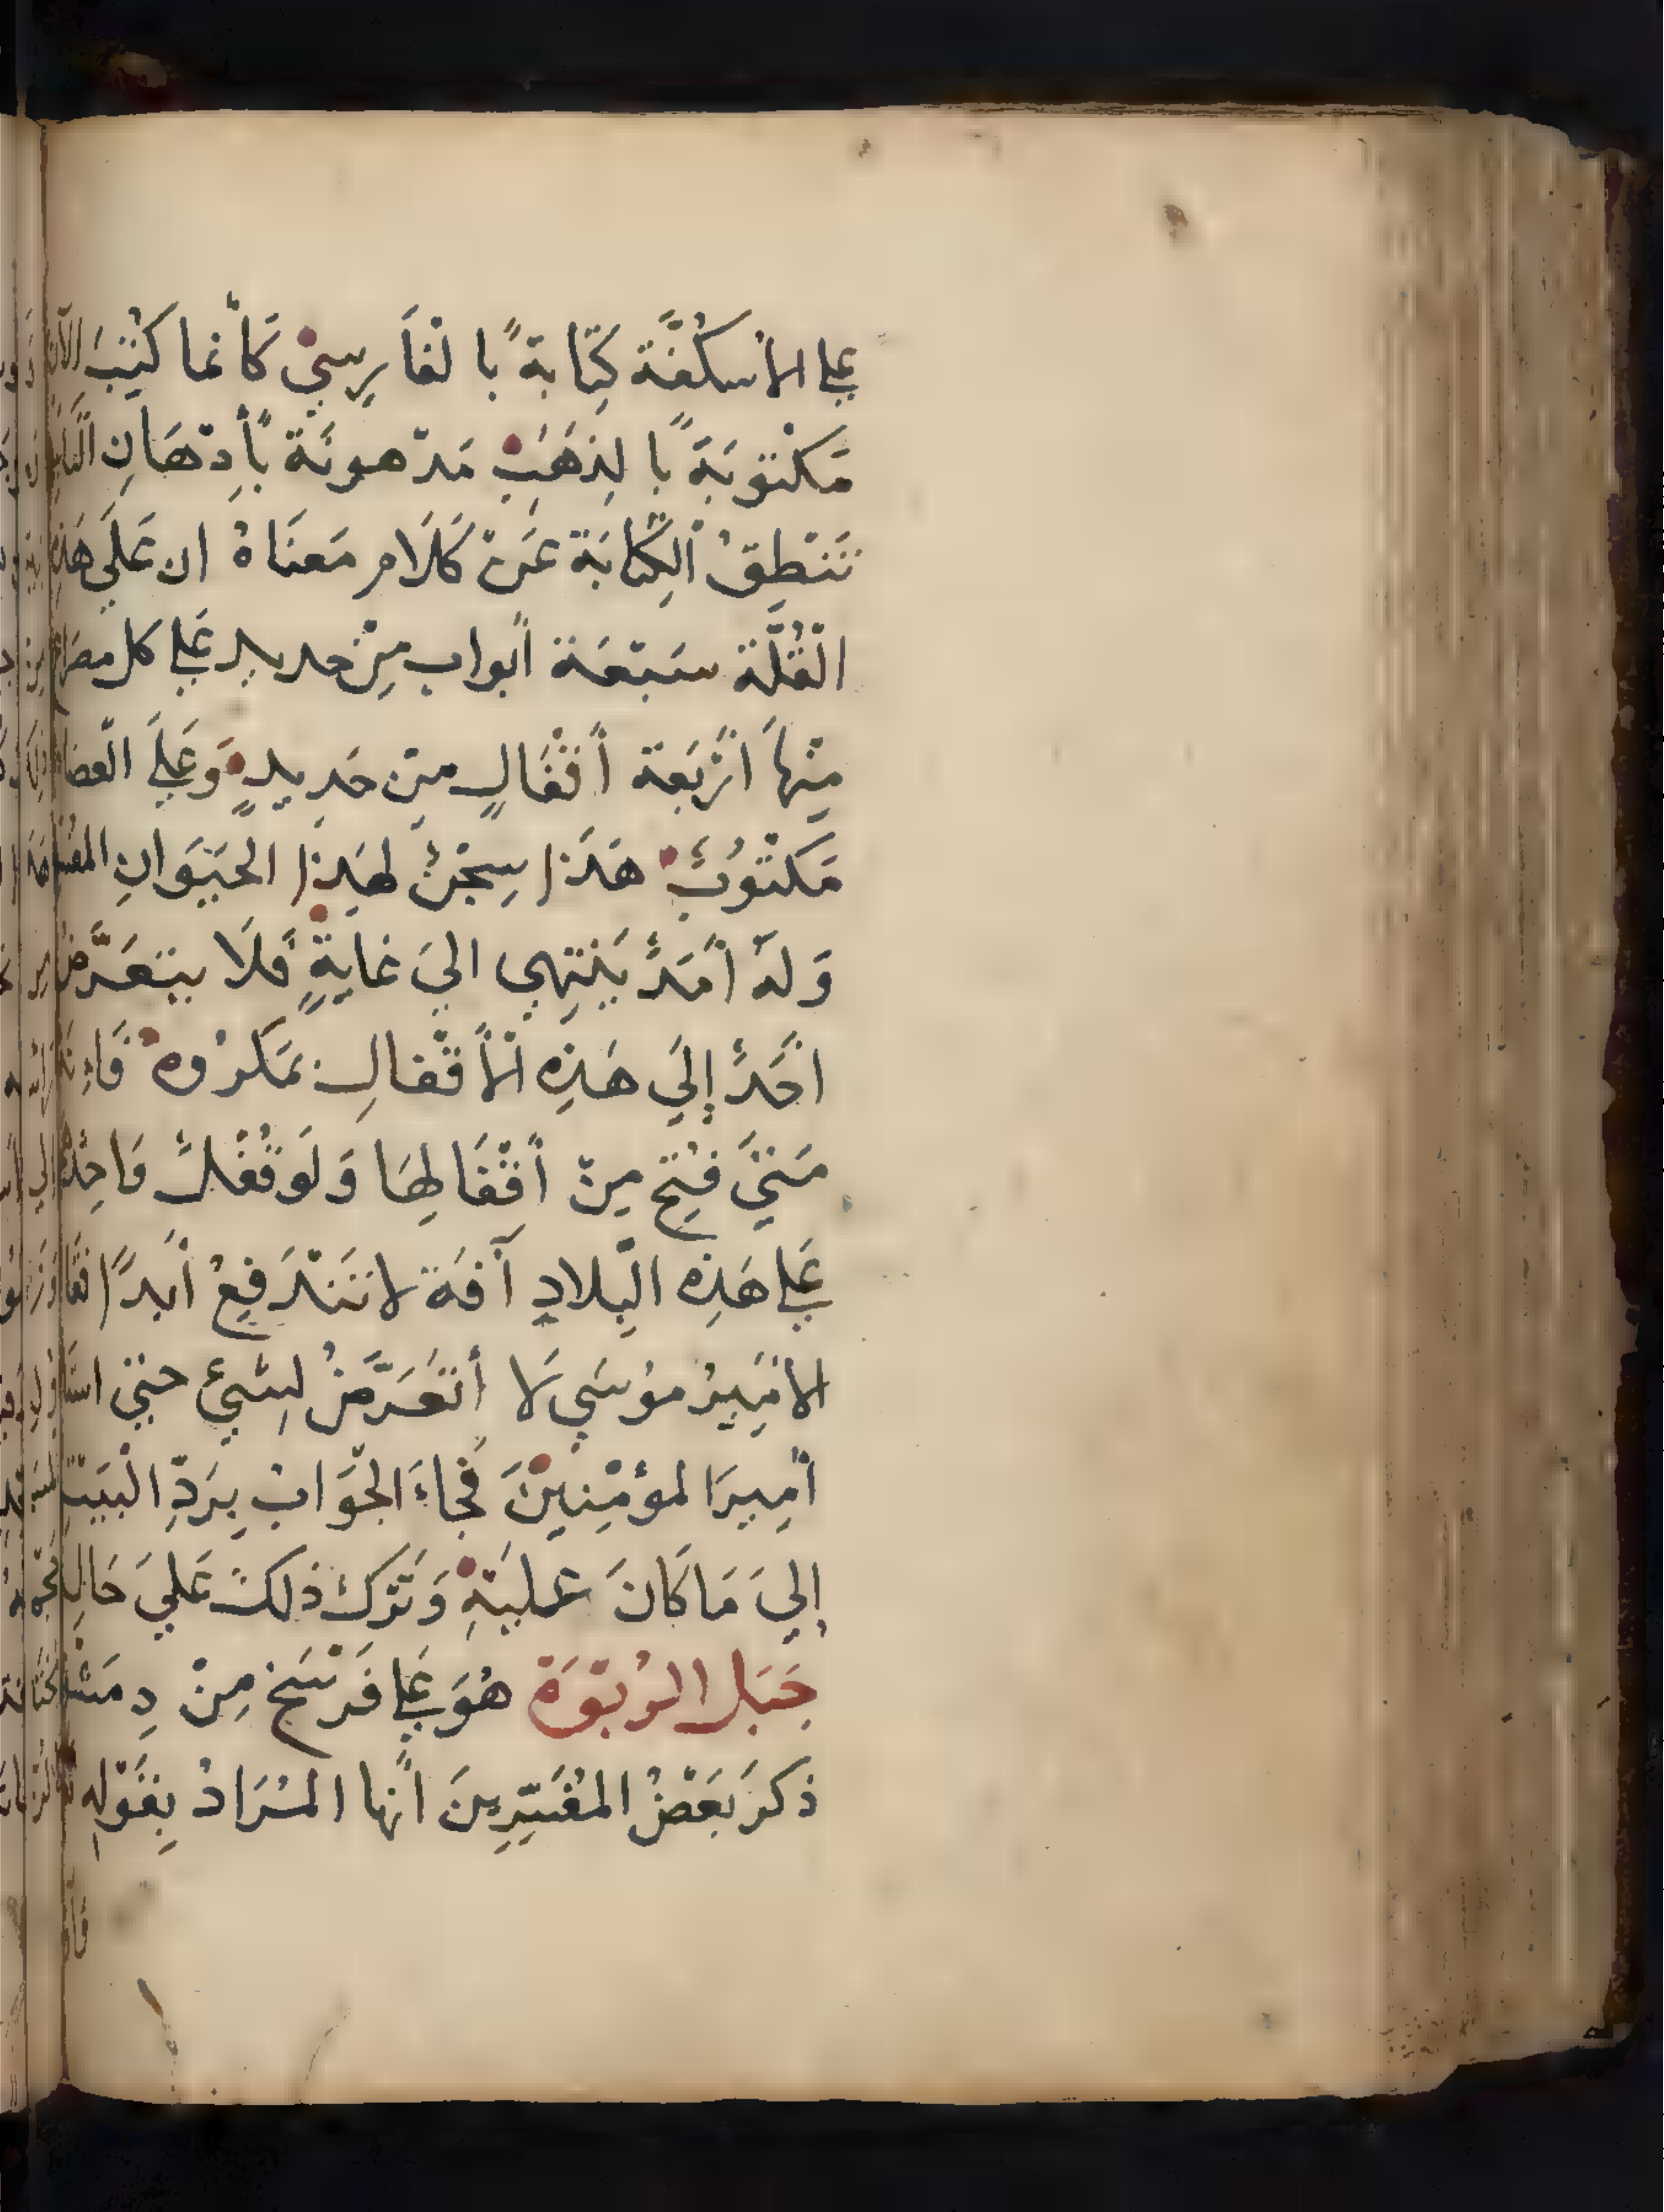 علي الأسكُفَّة كِتَابةً بالفَارِسِيْ كَأَنما كُتِبَ الآن
مَكْتوبَةً بالذَهَبْ مَدْهونَة بأَدْهَانِ
تَنْطِقُ الكِتَابَة عَنْ كَلَام مَعنَاهُ ان عَلَي هَذِهِ
الْقُلَّة سَبْعَة أبواب مِنْ حديد عَلي كل مصراع
مِنْهَا أَرْبَعَة أَقْفَالٍ مِنْ حَدِيدٍ وَعَلَي العضا
مَكْتُوبٌ هَذَا سِجْنٌ لهَذا الحَيَوَانِ
وَلَهُ أمَدٌ يَنتِهي اليَ غايةٍ فَلَا يتعَرَّض
أَحَدٌ إلَي هَذِه الأقْفالِ بمَكرُوه فَإنه
مَتيَ فُتِح مِنْ أَقْفَالِهَا وَلَو قُفْلٌ وَاحِدٌ
عَلي هَذِه البِلادِ آفَة لا تَنْدَفِعُ أَبَدًا
الأمَيرُ مُوسَي لَا أَتَعَرَّضُ لِشَيْءٍ حتي
أَمِيرَ المؤْمِنِيْنَ فَجَاءَ الْجَوَابُ بِرَدِّ الْبَيْتِ
إليَ مَا كَانَ عليَهِ وَتَرْك ذلكَ عَليَ حَالِه
جَبَل الرُبْوَة هُوَ عَلي فَرْسَخ مِنْ دِمَشْق
ذكرَ بَعْضُ المُفَسِّرِينَ أنها المُرَادُ بِقَوْلِهِ